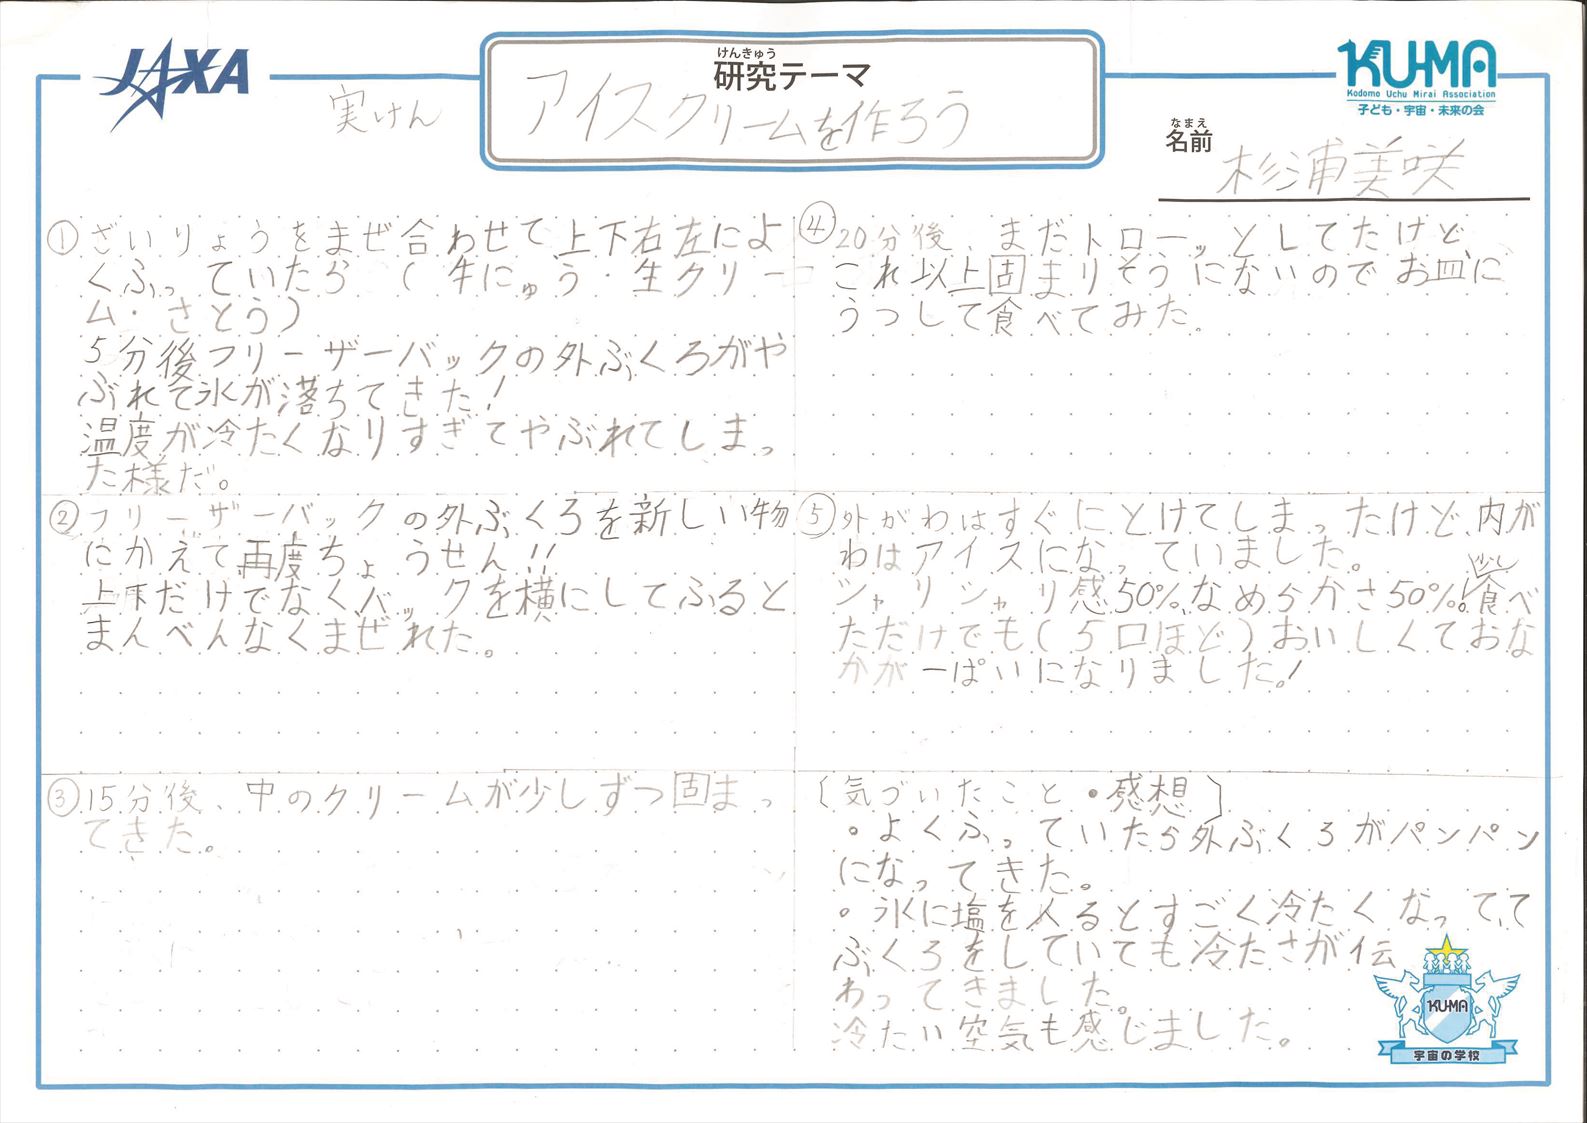 JAXA
実けん
けんきゅう
研究テーマ
アイスクリームを作ろう
KU-MA
Kodomo Uchu Mirai Association
子ども・宇宙・未来の会
なまえ
名前
杉浦美咲
①ざいりょうをまぜ合わせて上下右左によ
くふっていたら(牛にゅう・生クリー
ム・さとう)
5分後フリーザーバックの外ぶくろがや
ぶれて氷が落ちてきた!
温度が冷たくなりすぎてやぶれてしまっ
た様だ。
②フリーザーバックの外ぶくろを新しい物
にかえて再度ちょうせん!!
上下だけでなくバックを横にしてふると
まんべんなくまぜれた。
③15分後、中のクリームが少しずつ固まっ
てきた。
④20分後、まだトローッとしてたけど
これ以上固まりそうにないのでお皿に
うつして食べてみた。
⑤外がわはすぐにとけてしまったけど、内が
わはアイスになっていました。
シャリシャリ感50%、なめらかさ50%。少し食べ
ただけでも(5口ほど)おいしくておな
かが一ぱいになりました。!
〔気づいたこと・感想〕
・よくふっていたら外ぶくろがパンパン
になってきた。
・氷に塩を入るとすごく冷たくなって、て
ぶくろをしていても冷たさが伝
わってきました。
冷たい空気も感じました。
KU-MA
宇宙の学校